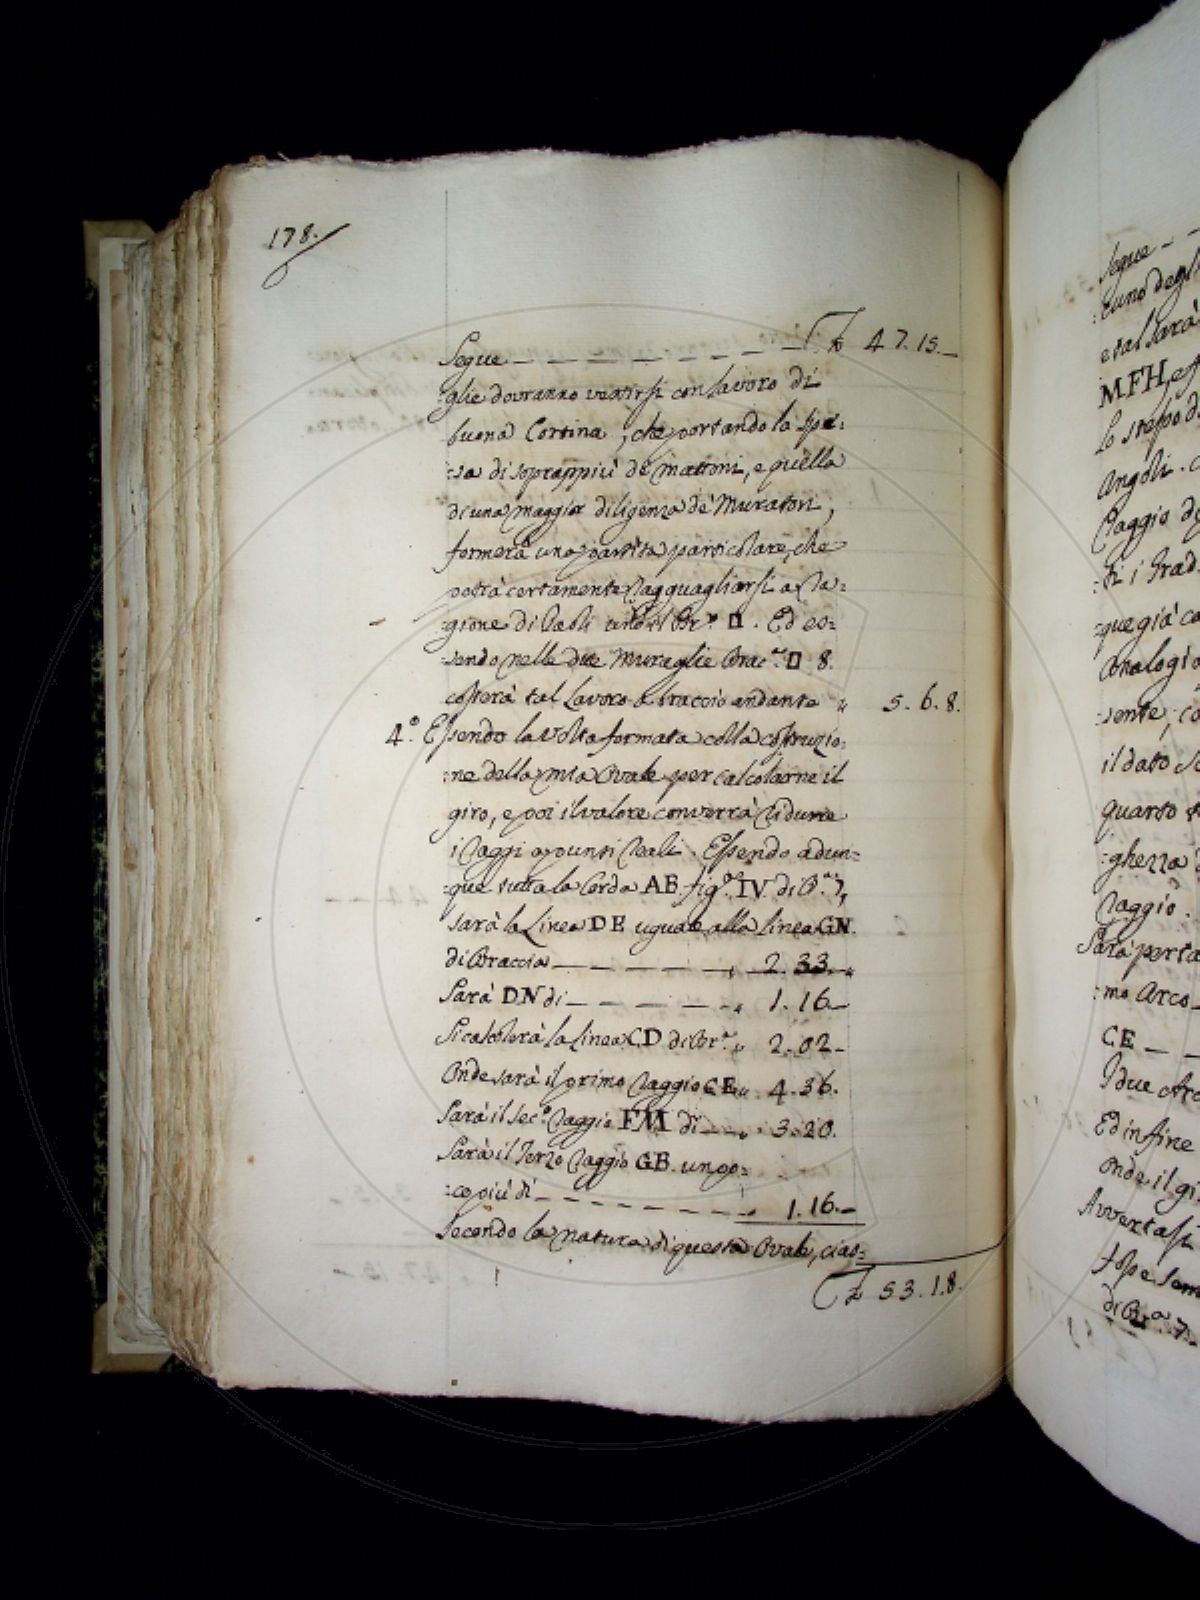 178.
Segue — — — — — — — — £ 47.15.—
:glie dovranno vestirsi con lavoro di
buona Cortina, che portando la spe:
:sa di soprappiù de' mattoni, e quella
di una maggior diligenza de' Muratori,
formerà una partita particolare, che
potrà certamente ragguagliarsi a ra:
:gione di Paoli uno il Br.º □. Ed es:
:sendo nelle due Muraglie Brac.ª □ 8.
costerà tal Lavoro a braccio andante „ 5.6.8.
4.º Essendo la Volta formata colla costruzio:
:ne della mia Ovale per calcolarne il
giro, e poi il valore converrà ridurre
i raggi a punti reali. Essendo adun:
:que tutta la Corda AB fig.ª IV di B.ª 7,
sarà la Linea DE uguale alla linea GN.
di Braccia — — — — — „ 2.33.„
Sarà DN di — — — — — „ 1.16.—
Si calcolerà la Linea CD di Br.ª „ 2.02.—
Onde sarà il primo raggio CE „ 4.36.
Sarà il sec.º raggio FM di — — „ 3.20.
Sarà il Terzo raggio GB un po:
:co più di — — — — — — „ 1.16.—
Secondo la natura di questa Ovale, cias:
£ 53.1.8.
Segue — —
:cuno degl
e tal sarà
MFH, e
Lo stesso d
Angoli.
raggio d
:ti i Grad
:que già
Analogi
:sente, co
il dato
quarto
:ghezza
raggio.
Sarà perta
:mo Arco —
CE — —
I due Arc
Ed in fine
Onde il gi
Avvertasi
di Br.ª 7.